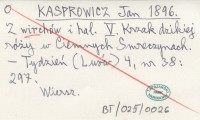 O KASPROWICZ Jan 1896.
Z wirchów i hal. V. Krzak dzikiej
róży w Ciemnych Smreczynach.
– Tydzień (Lwów) 4, nr 38:
297.
Wiersz.
BT/025/0026